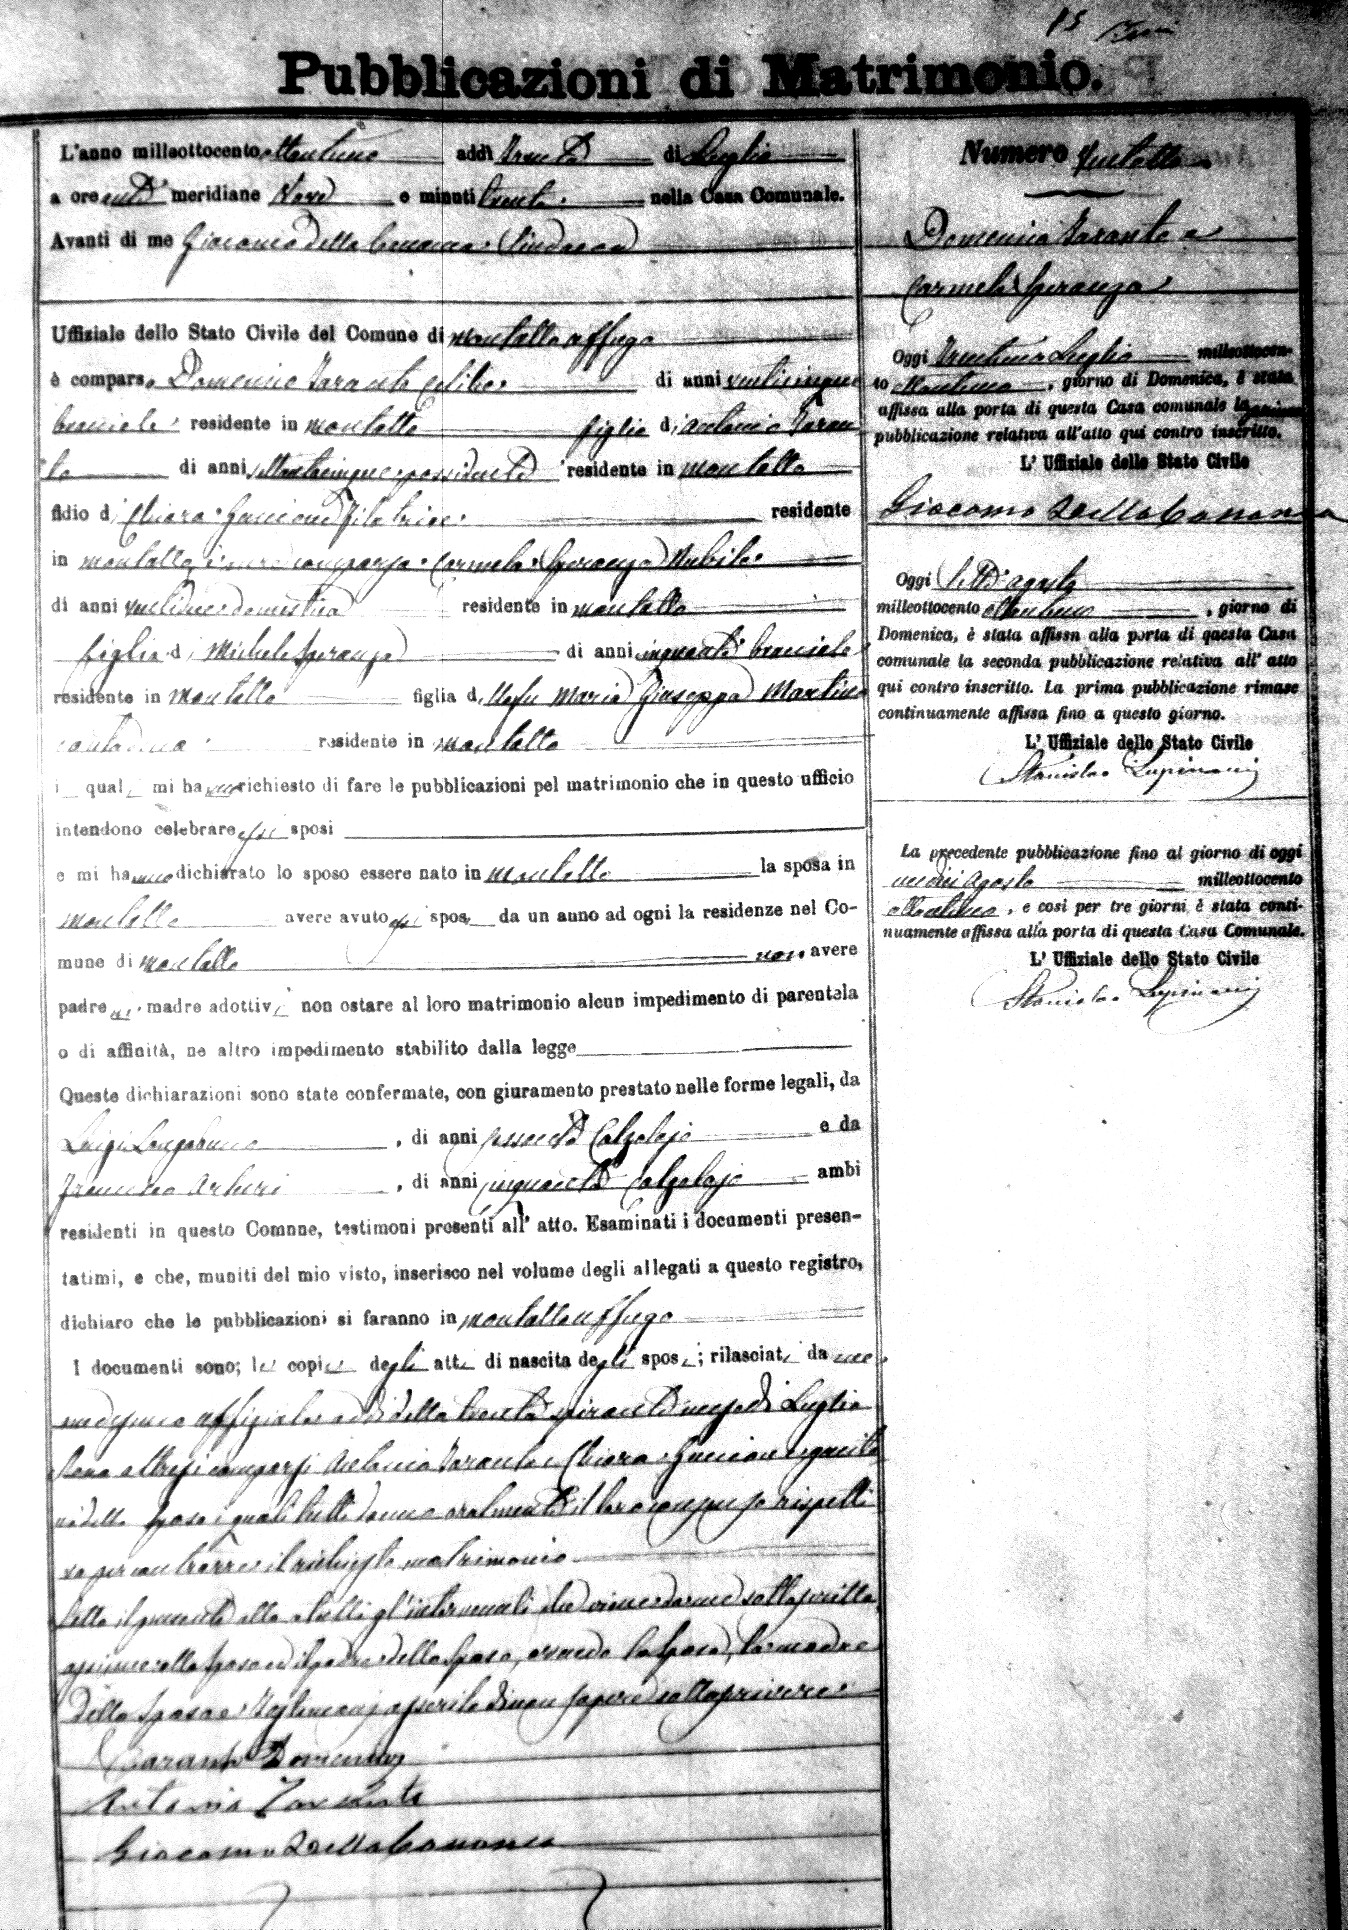 15
Pubblicazioni di Matrimonio.
L'anno milleottocento ottantuno addì Trenta di Luglio
a ore anti meridiane Nove e minuti trenta nella Casa Comunale.
Avanti di me Giacomo della Cananea Sindaco
Uffiziale dello Stato Civile del Comune di Montalto Uffugo
è comparso Domenico Taranto celibe di anni venticinque
bracciale residente in Montalto figlio di Antonio Taran
to di anni settantacinque possidente residente in Montalto
fidio di Chiara Filatrice residente
in Montalto, comparsa Carmela Speranza Nubile
di anni domestica residente in Montalto
figlia di Michele Speranza di anni cinquanta bracciale
residente in Montalto figlia di Maria Giuseppa Martino
contadina residente in Montalto
i quali mi hanno richiesto di fare le pubblicazioni pel matrimonio che in questo ufficio
intendono celebrare essi sposi
e mi hanno dichiarato lo sposo essere nato in Montalto la sposa in
Montalto avere avuto essi sposi da un anno ad ogni la residenze nel Co-
mune di Montalto non avere
padre nè madre adottivi non ostare al loro matrimonio alcun impedimento di parentela
o di affinità, ne altro impedimento stabilito dalla legge
Queste dichiarazioni sono state confermate, con giuramento prestato nelle forme legali, da
Luigi Longobucco, di anni sessanta Calzolajo e da
Francesco Arturi, di anni cinquanta Calzolajo ambi
residenti in questo Comnne, testimoni presenti all' atto. Esaminati i documenti presen-
tatimi, e che, muniti del mio visto, inserisco nel volume degli allegati a questo registro,
dichiaro che le pubblicazioni si faranno in Montalto Uffugo
I documenti sono; le copie degli atti di nascita degli sposi; rilasciati da me
medesimo uffiziale addì della trenta spirante mese di Luglio
Sono altresì comparsi Antonio Taranto e Chiara genito
ri dello sposo i quali tutti danno oralmente il loro consenso rispetti
vo per contrarre il richiesto matrimonio
Letto il presente atto a tutti gl'intervenuti
sposo ed il padre dello sposo, avendo la sposa, la madre
dello sposo e Testimoni asserito di non sapere sottoscrivere
Taranto Domenico
Antonio Taranto
Giacomo della Cananea
Numero Ventotto
Domenico Taranto e
Carmela Speranza
Oggi Trentuno Luglio milleottocen-
to ottantuno, giorno di Domenica, è stata
affissa alla porta di questa Casa comunale la prima
pubblicazione relativa all'atto qui contro inscritto.
L' Uffiziale dello Stato Civile
Giacomo della Cananea
Oggi Sette Agosto
milleottocento ottantuno, giorno di
Domenica, è stata affissa alla porta di questa Casa
comunale la seconda pubblicazione relativa all' atto
qui contro inscritto. La prima pubblicazione rimase
continuamente affissa fino a questo giorno.
L' Uffiziale dello Stato Civile
Stanislao Lupinacci
La precedente pubblicazione fino al giorno di oggi
undici Agosto milleottocento
ottantuno, e così per tre giorni è stata conti-
nuamente affissa alla porta di questa Casa Comunale.
L' Uffiziale dello Stato Civile
Stanislao Lupinacci